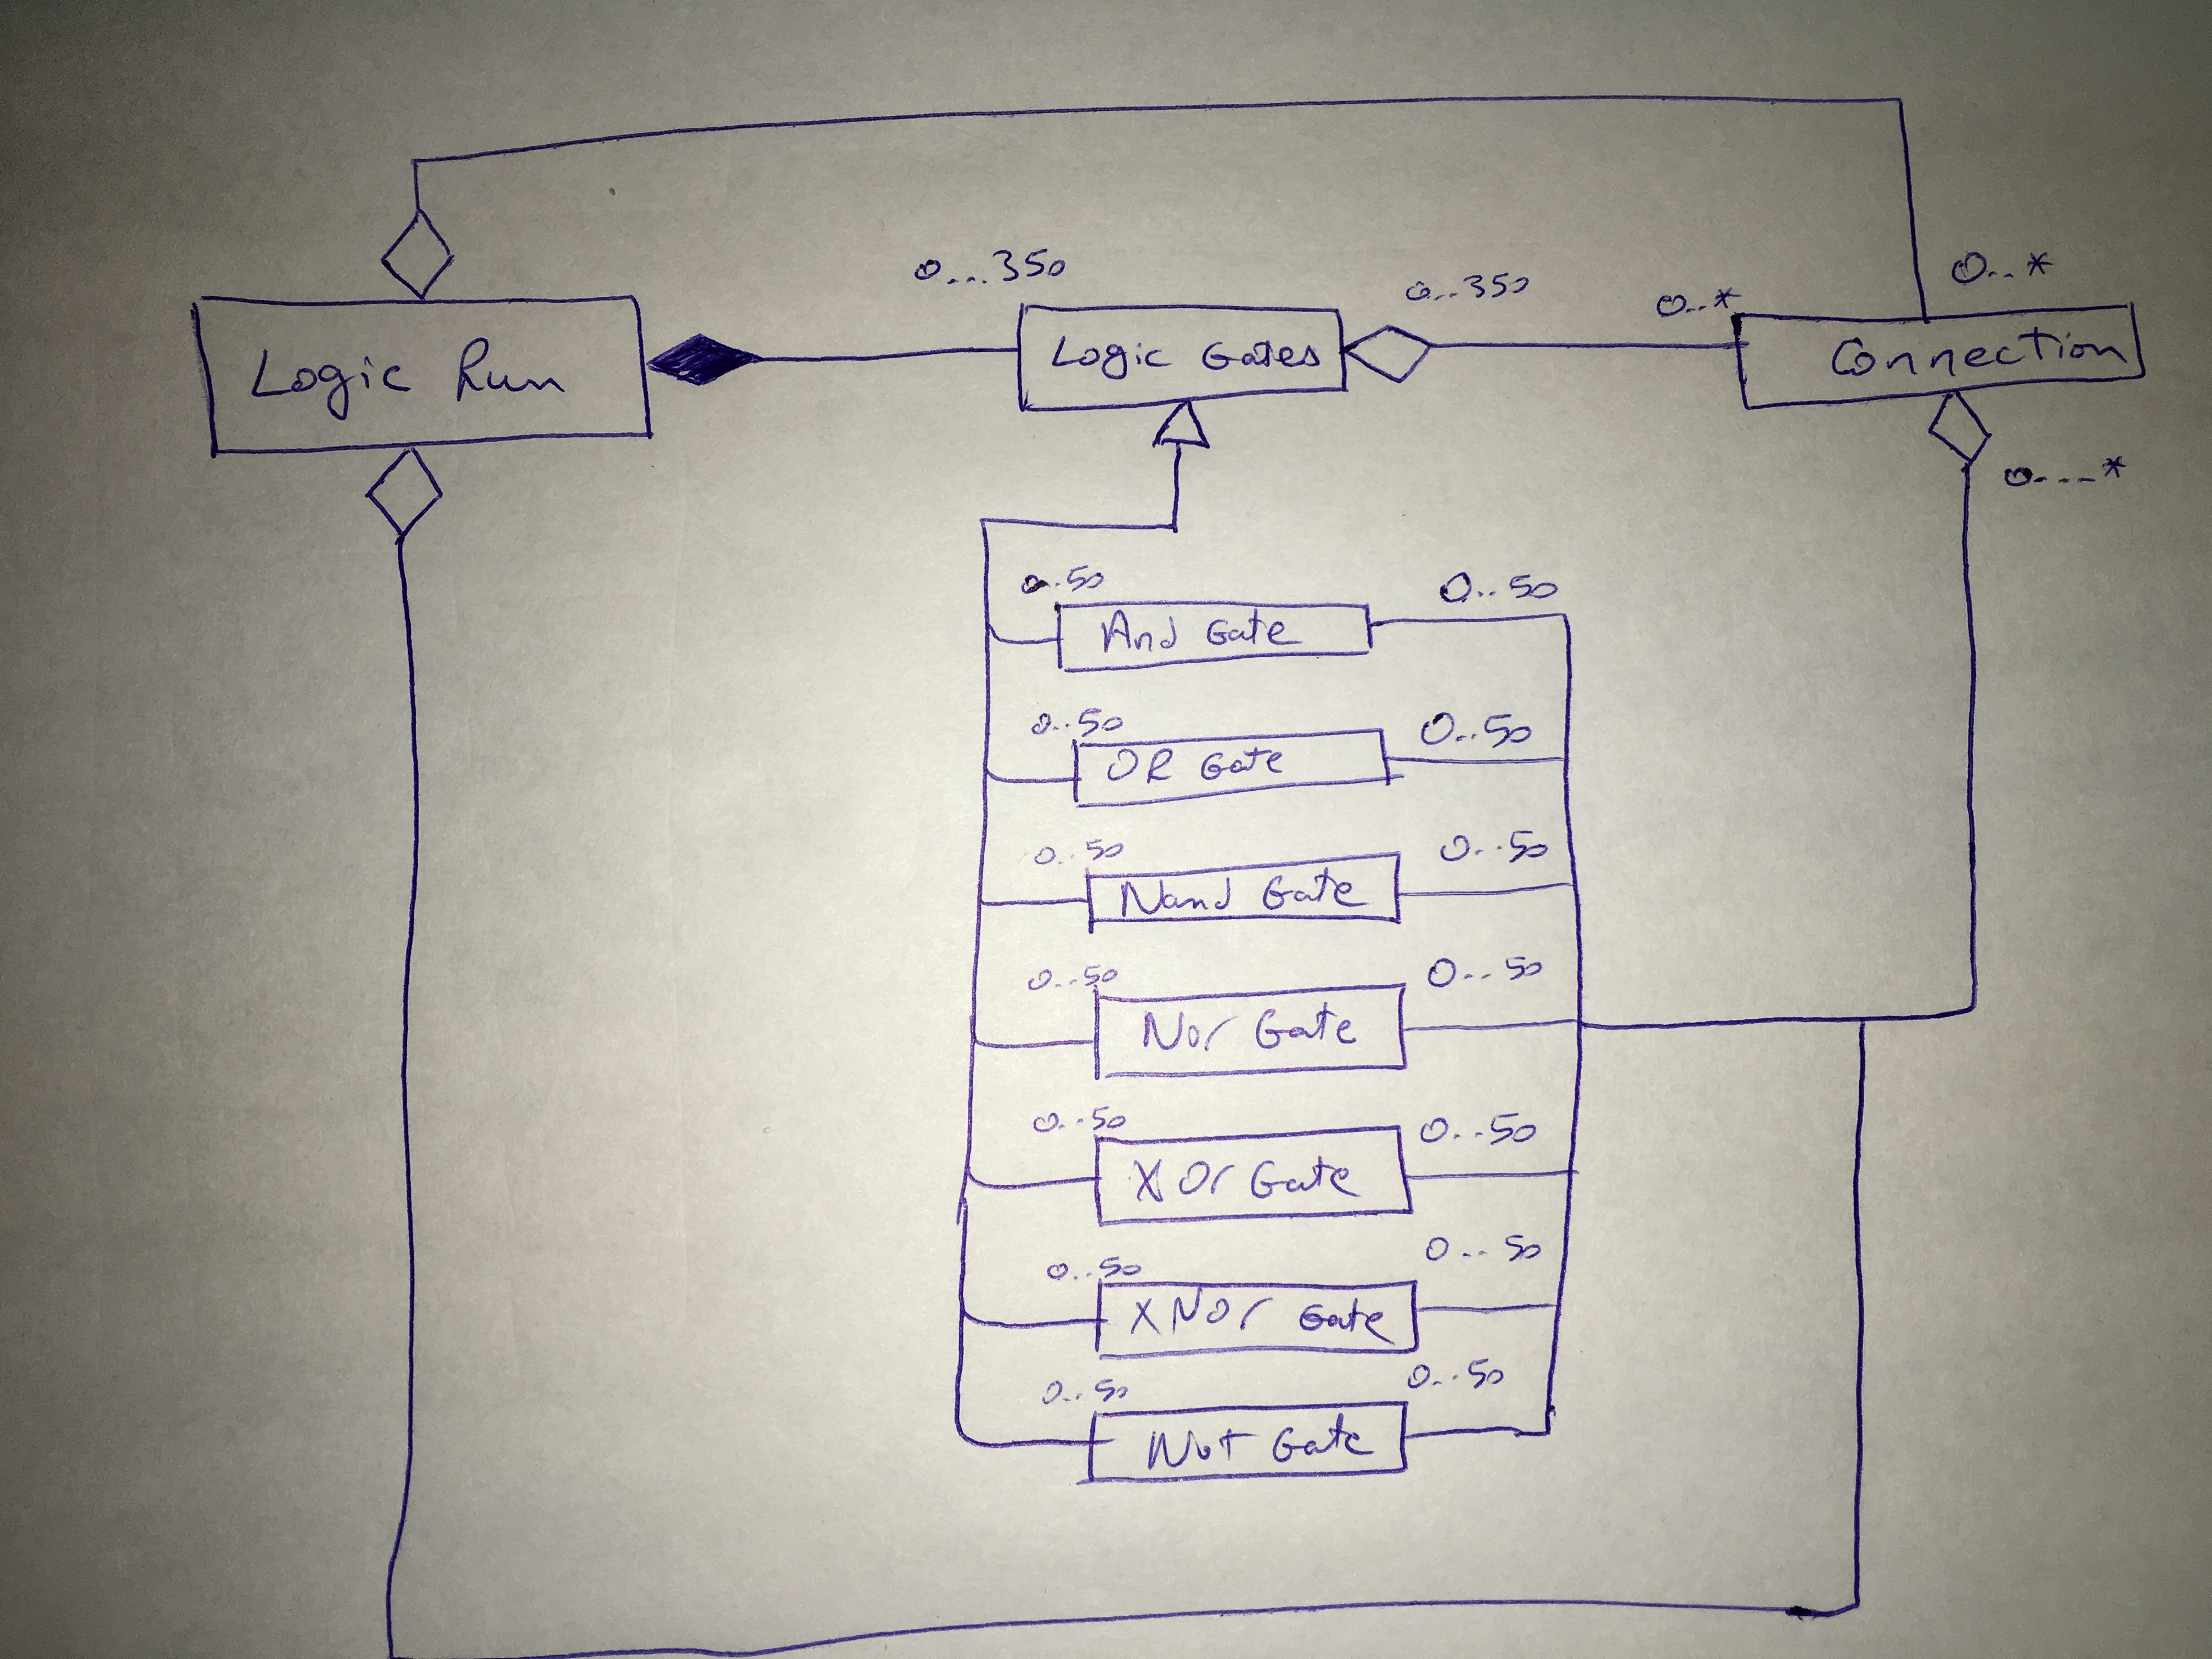 Logic Run
0...350
Logic Gates
0..350
0..*
Connection
0..*
0----*
0..50
And Gate
0..50
0..50
OR Gate
0..50
0..50
Nand Gate
0..50
0..50
Nor Gate
0...50
0..50
XOr Gate
0...50
0..50
XNor Gate
0...50
0..50
Not Gate
0...50